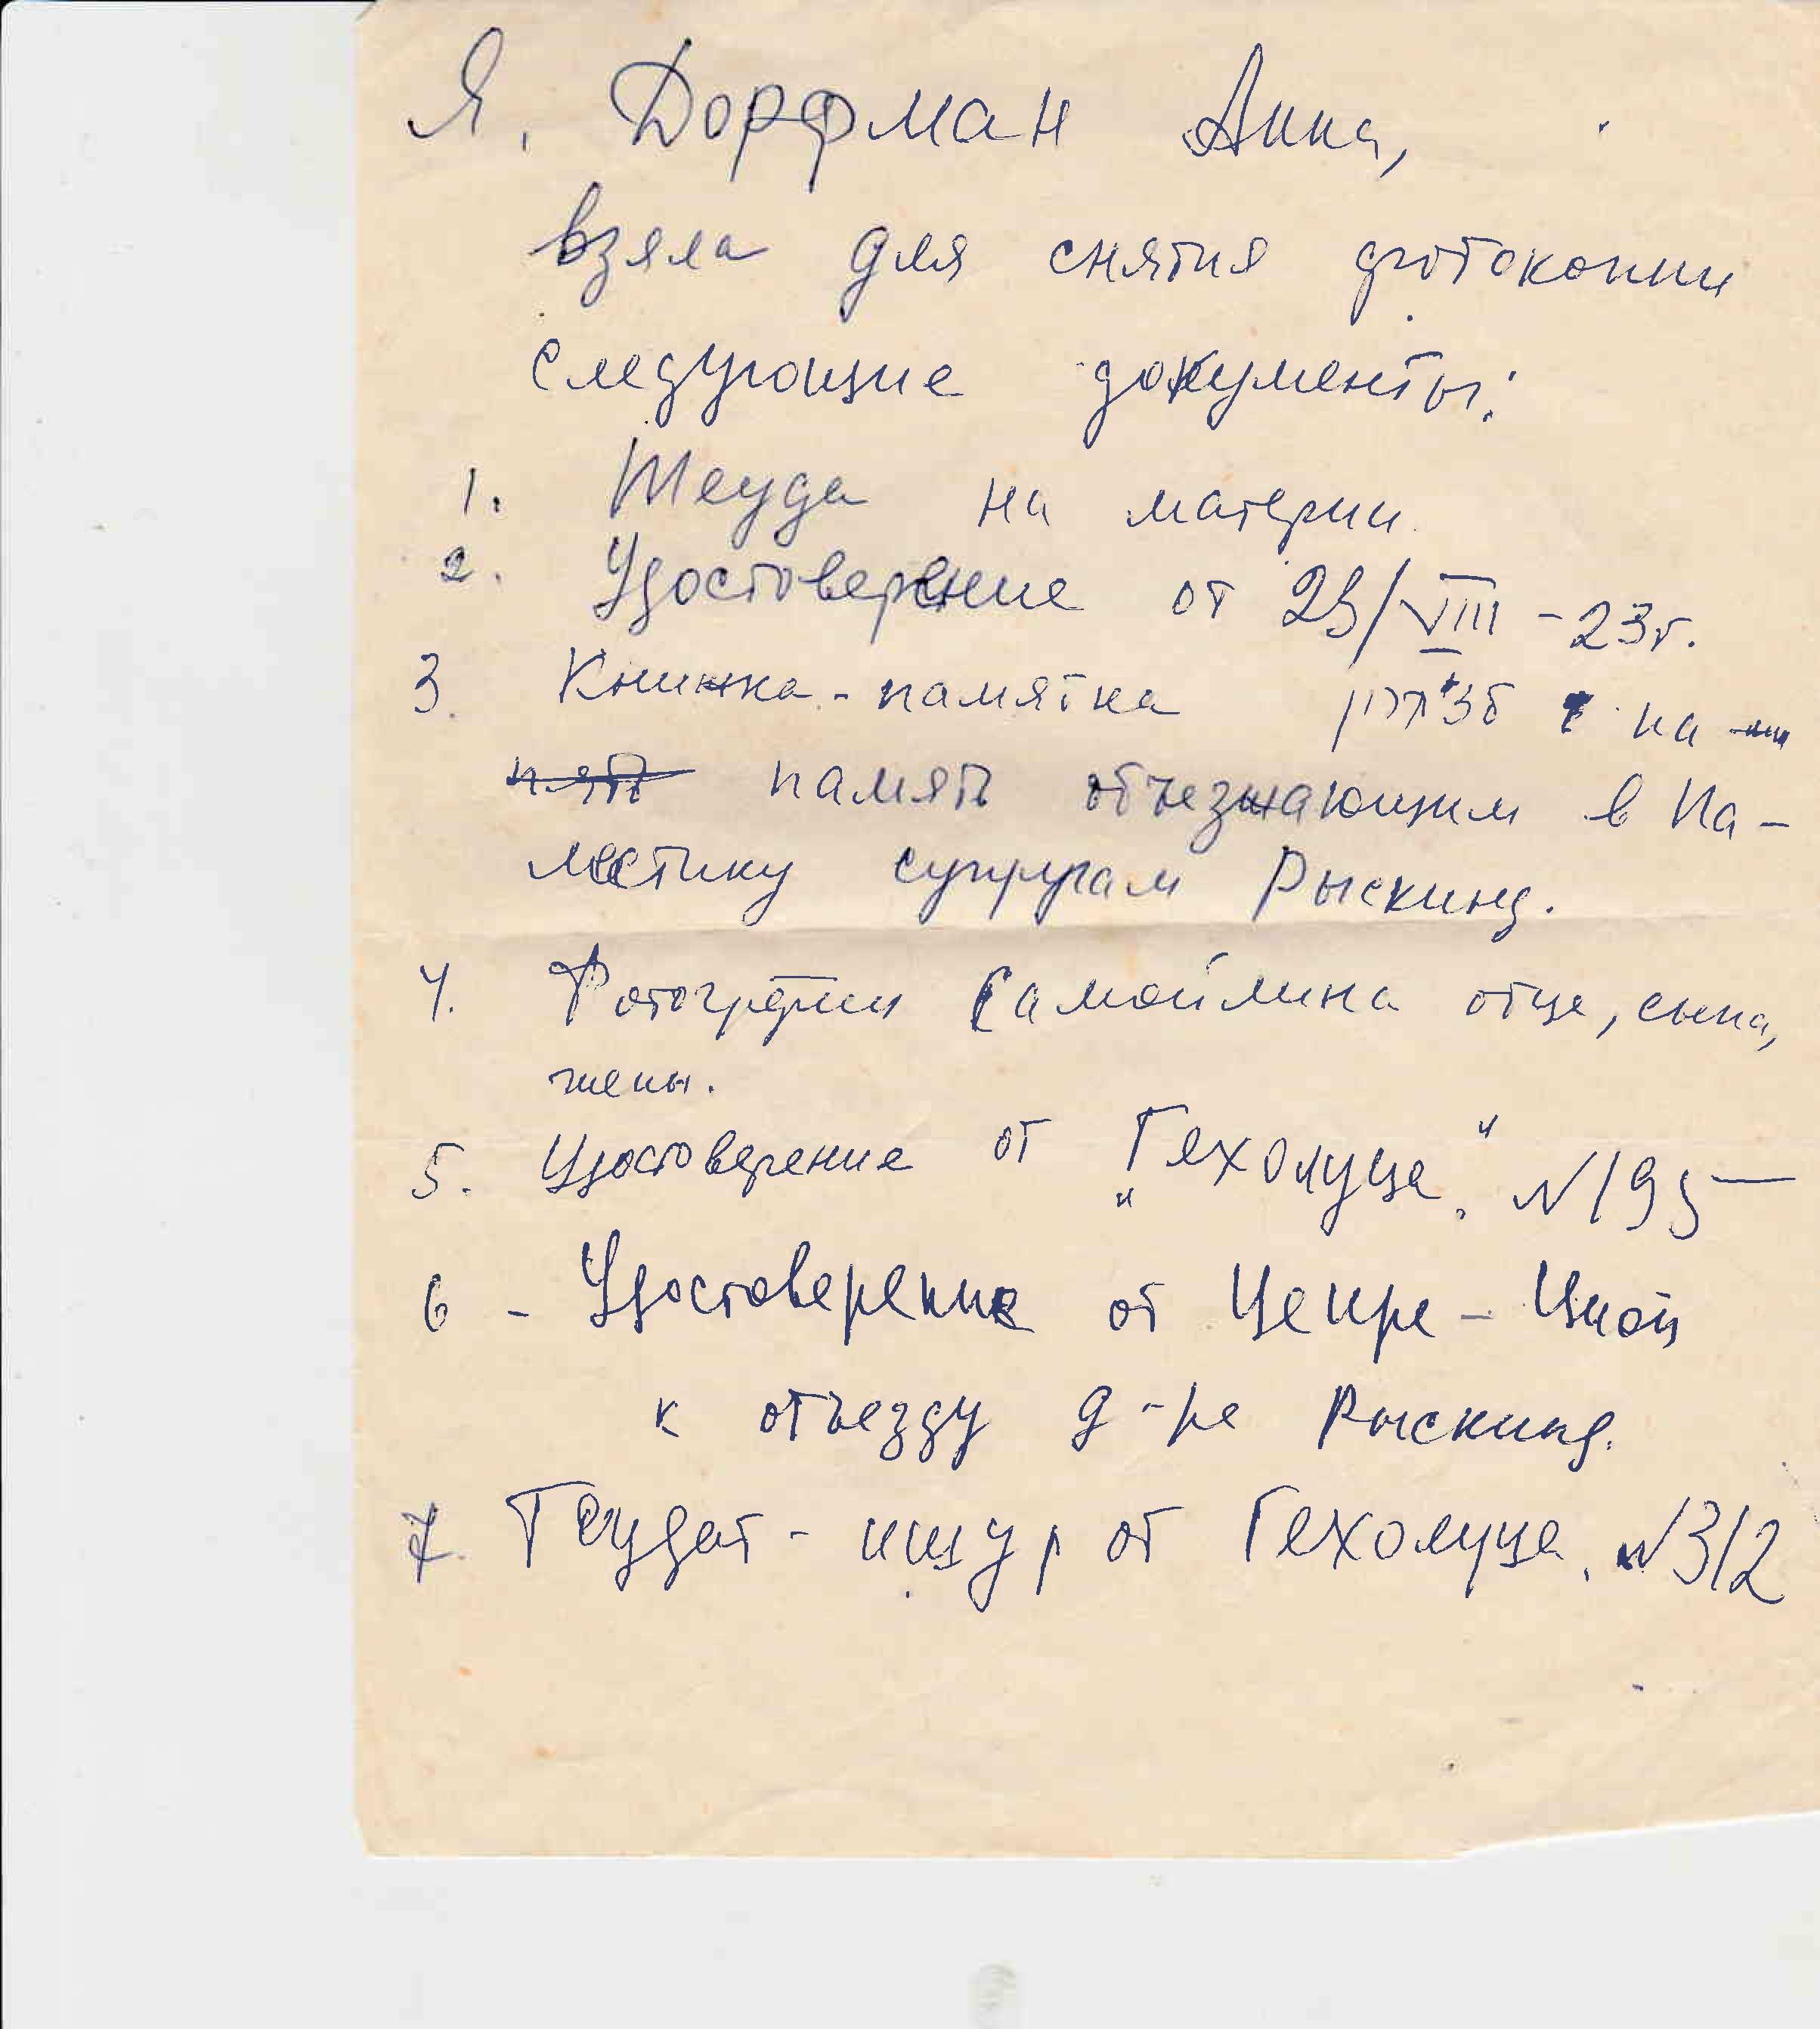 Я, Дорфман Анна,
взяла для снятия фотокопии
следующие документы:
1. Теуда на материи.
2. Удостоверение от 23/VIII - 23 г.
3. Книжка - памятка на
пять память отъезжающим в Па-
лестину супругам Рыскинд.
4. Фотографии Самойлина отца, сына,
жены.
5. Удостоверение от "Гехолуца". №195
6 - Удостоверение от Цеире - Цион
к отъезду д-ра Рыскинд.
7. Теудат - ишур от Гехолуца. №312